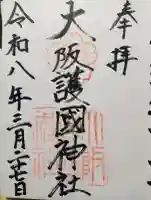 奉拝
大阪護國神社
令和八年三月二七日